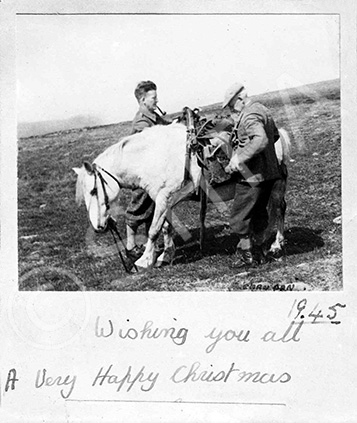 19.45
Wishing you all
A Very Happy Christmas